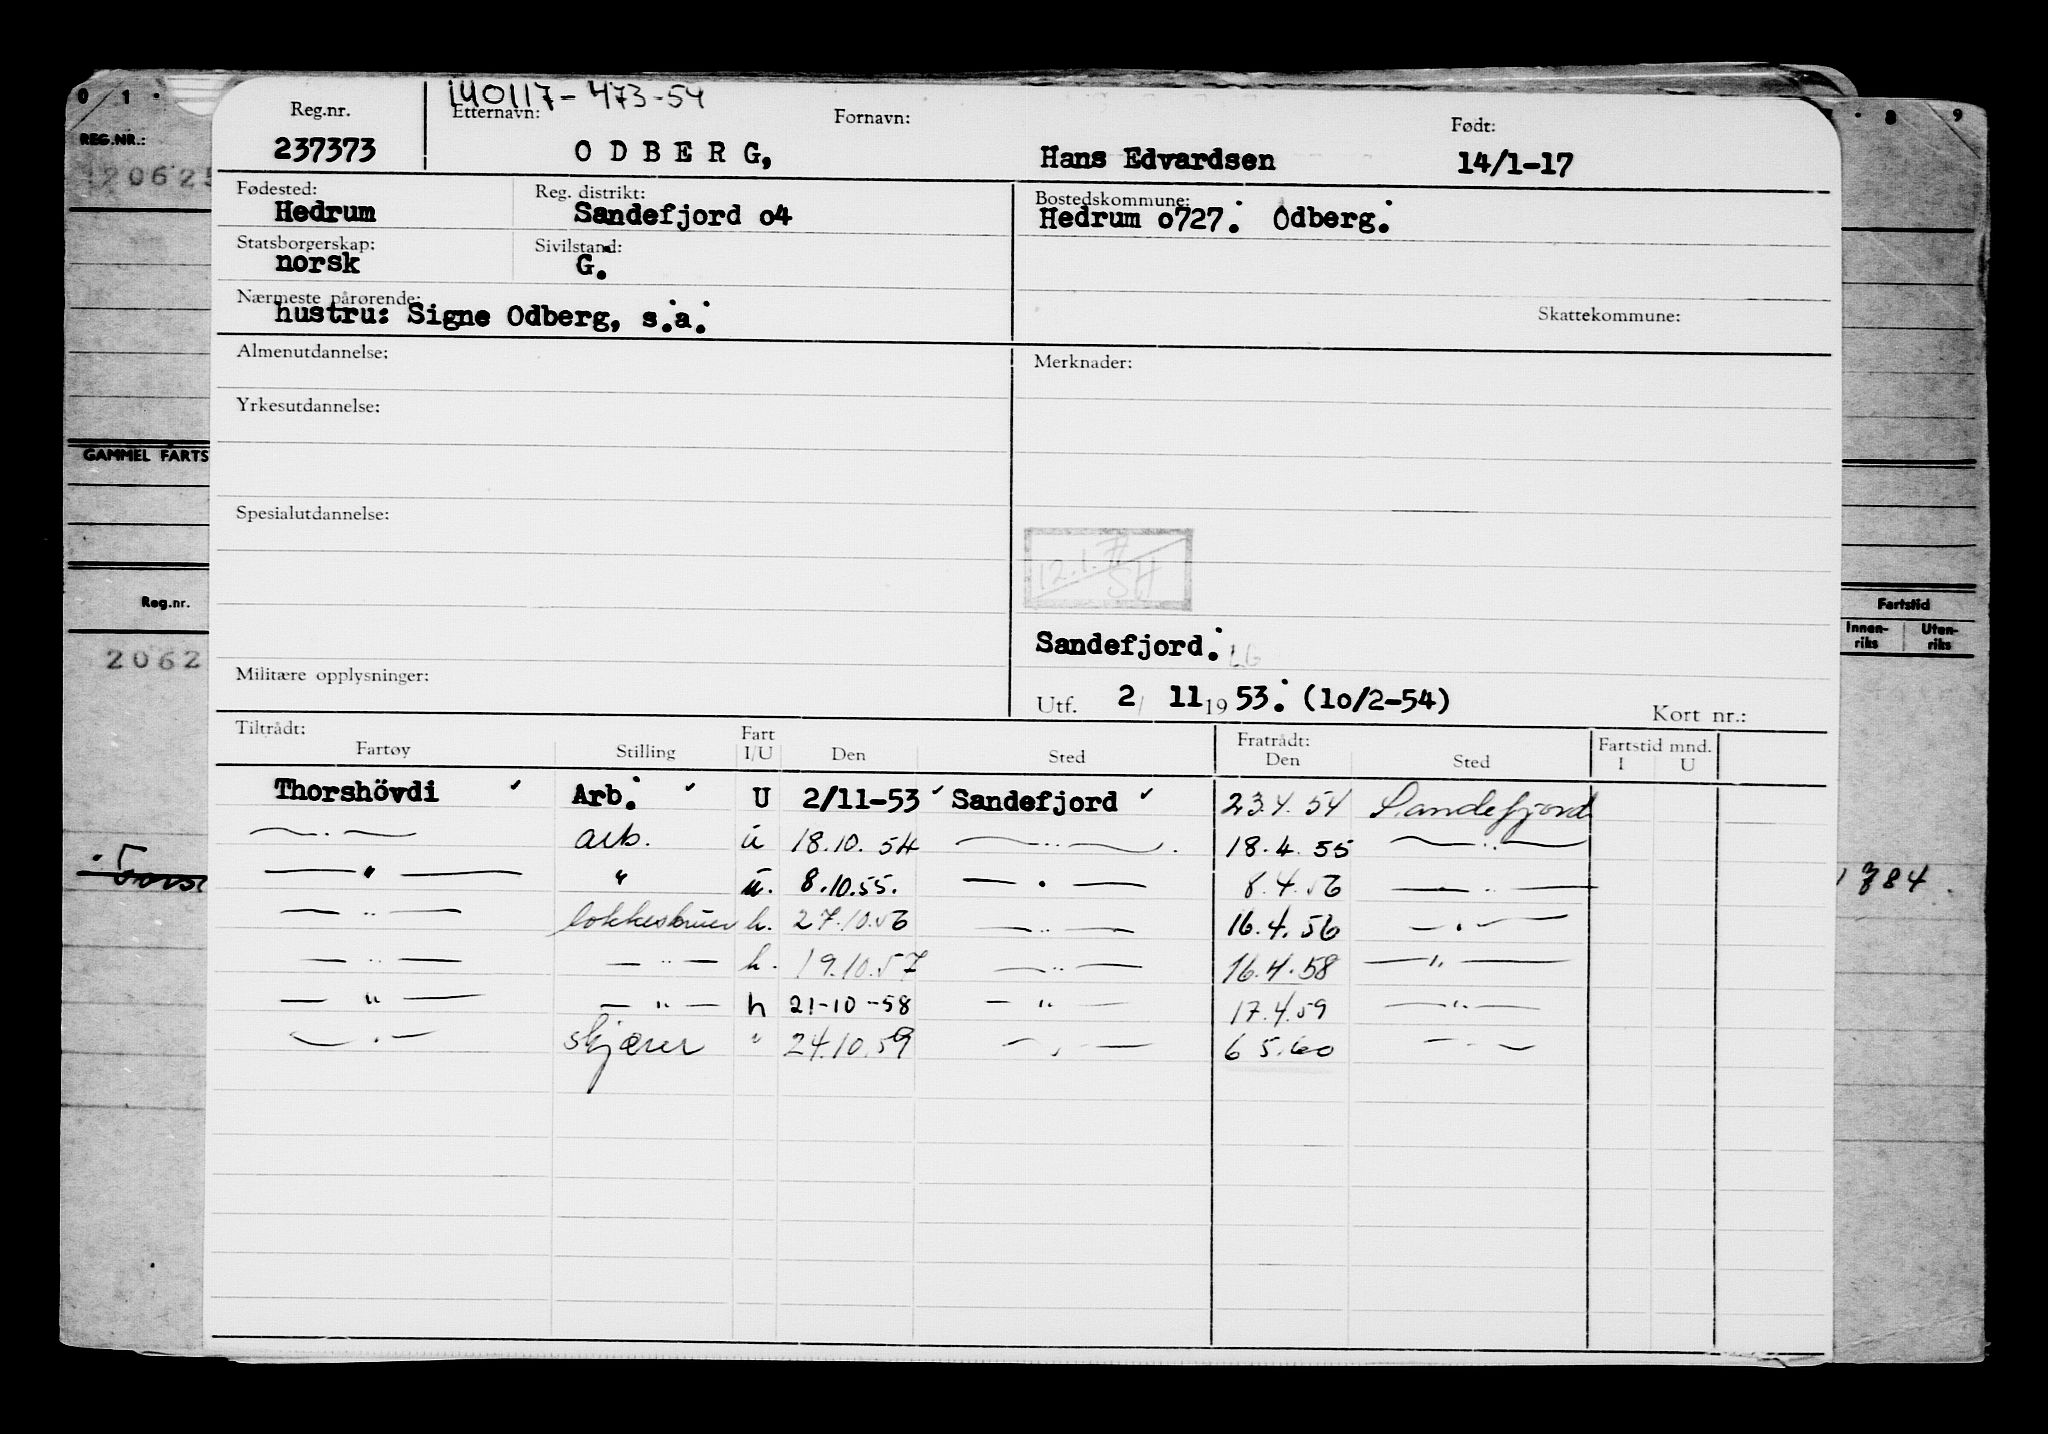 0 1 . . 8 9
REG.NR.:
140117-473-54
Reg.nr. Etternavn: Fornavn: Født:
237373 ODBERG, Hans Edvardsen 14/1-17
Fødested: Reg. distrikt: Bostedskommune:
Hedrum Sandefjord o4 Hedrum o727. Odberg.
Statsborgerskap: Sivilstand:
norsk G.
Nærmeste pårørende: Skattekommune:
hustru: Signe Odberg, s.a.
Almenutdannelse: Merknader:
Yrkesutdannelse:
GAMMEL FARTS
Spesialutdannelse:
12.1.
Reg.nr. Fartstid
Innen-riks Uten-riks
Sandefjord.
2062
Militære opplysninger:
Utf. 2/ 11 19 53. (1o/2-54) Kort nr.:
Tiltrådt: Fart Fratrådt: Fartstid mnd.
Fartøy Stilling I/U Den Sted Den Sted I U
Thorshövdi ✓ Arb. ✓ U 2/11-53 ✓ Sandefjord ✓ 23.4.54 Sandefjord
—..— arb. u 18.10.54 —..— 18.4.55 —..—
—"— " u. 8.10.55. —.— 8.4.56 —..—
—..— lokkeskruer h. 27.10.56 —..— 16.4.56 —.—
—..— —..— h. 19.10.57 —..— 16.4.58 —"—
—"— —"— h 21-10-58 —"— 17.4.59 —"—
—.— skjærer " 24.10.59 —.— 6 5.60 —..—